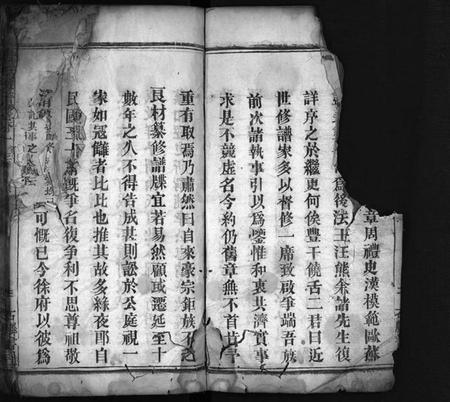 章周禮史漢模範歐蘇
為後法王汪熊余諸先生復
詳序之於繼更何俟豐干饒舌二君曰近
世修譜家多以督修一席致啟爭端吾族
前次諸執事引以為鑒惟和衷共濟實事
求是不競虛名今約仍舊章無不首肯
重有取焉乃肅然曰自來豪宗鉅族不乏
良材纂修譜牒宜若易然顧或遷延至十
數年之久不得告成甚則訟於公庭視一
家如寇讎者比比也推其故多緣夜郎自
民國 爭名復爭利不思尊祖敬
清 可慨已今徐府以彼為